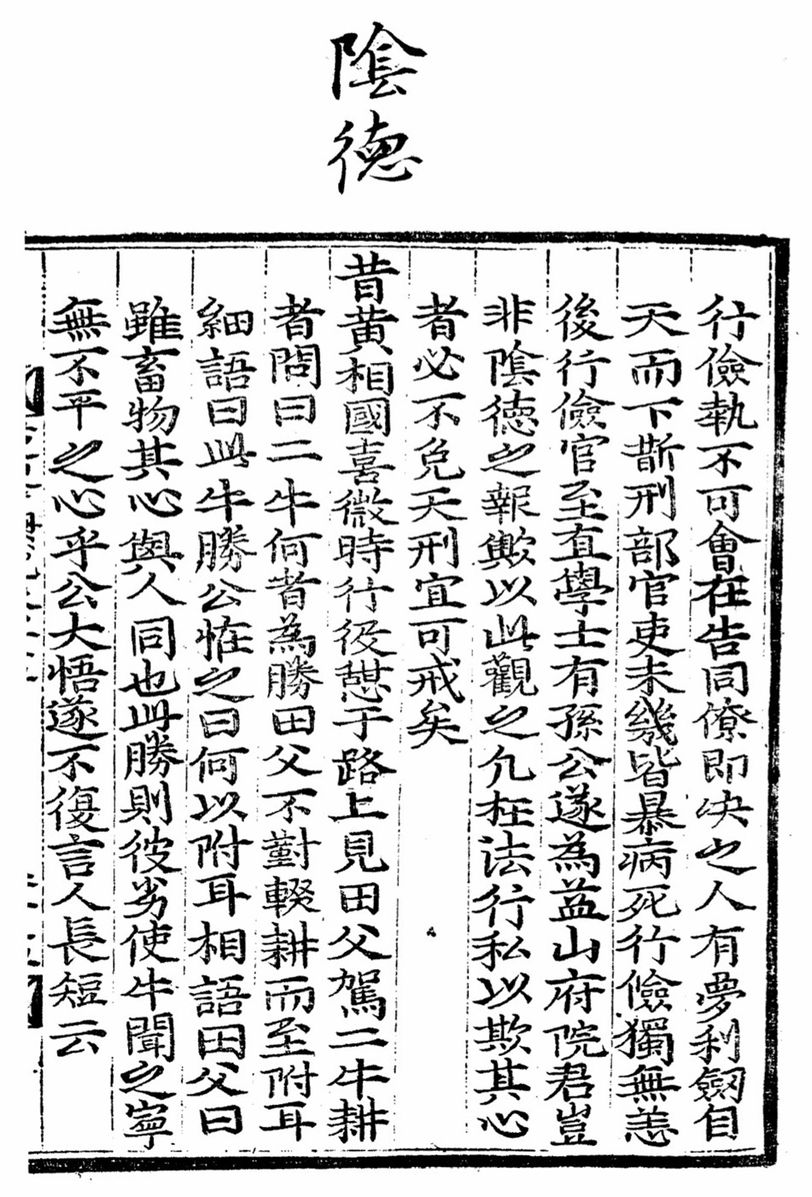 陰德
行儉執不可會在告同僚即决之人有夢利劒自
天而下斮刑部官吏未幾皆暴病死行儉獨無恙
後行儉官至直學士有孫公遂為益山府院君豈
非陰德之報歟以此觀之凢枉法行私以欺其心
者必不免天刑宜可戒矣
昔黃相國喜微時行役憇于路上見田父駕二牛耕
者問曰二牛何者為勝田父不對輟耕而至附耳
細語曰此牛勝公恠之曰何以附耳相語田父曰
雖畜物其心與人同也此勝則彼劣使牛聞之寧
無不平之心乎公大悟遂不復言人長短云